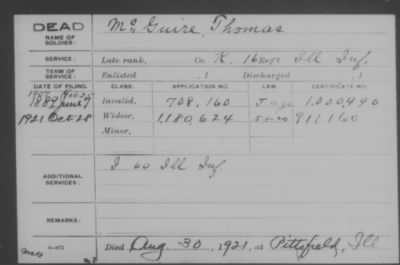 DEAD
NAME OF SOLDIER:
McGuire, Thomas
SERVICE: Late rank, Co. K. 16 Ill Inf.
TERM OF SERVICE: Enlisted , 1 Discharged , 1
DATE OF FILING. CLASS. APPLICATION NO. LAW. CERTIFICATE NO.
1907
1889 June Invalid, 708,160 1,000,490
1921 Oct 28 Widow, 1,180,624 911160
Minor,
ADDITIONAL SERVICES: I 60 Ill Inf.
REMARKS:
Died Aug. 30, 1921, at Pittsfield, Ill